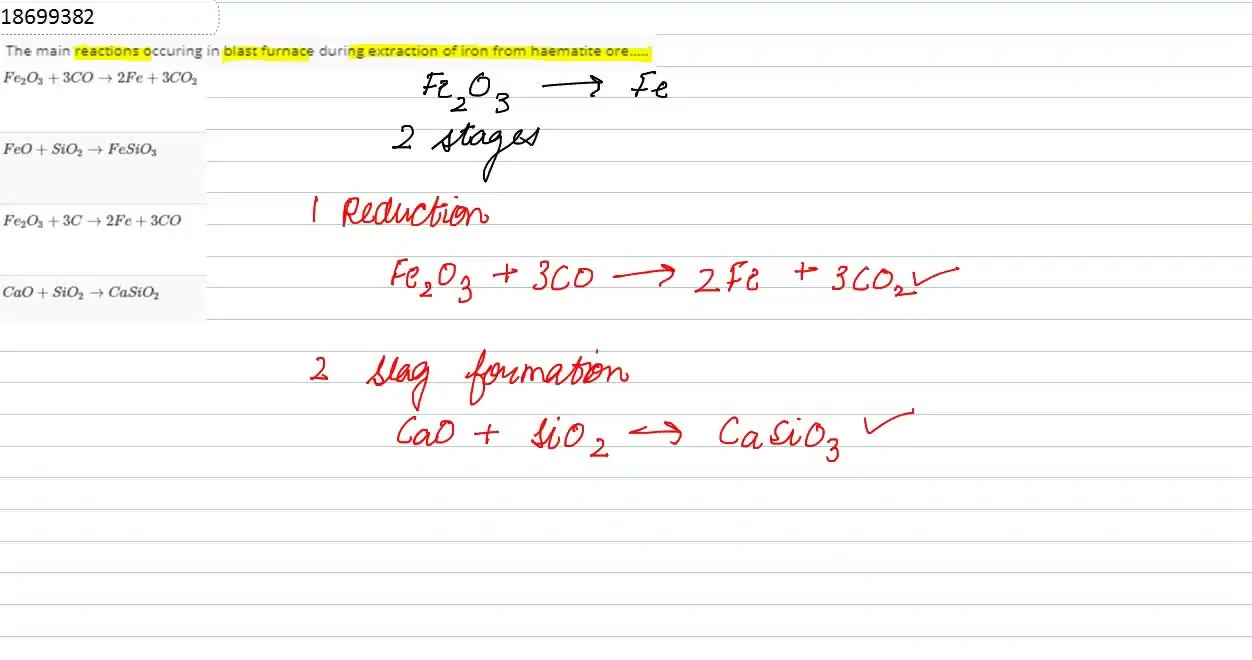 18699382
The main reactions occuring in blast furnace during extraction of iron from haematite ore.....
Fe₂O₃ + 3CO → 2Fe + 3CO₂
FeO + SiO₂ → FeSiO₃
Fe₂O₃ + 3C → 2Fe + 3CO
CaO + SiO₂ → CaSiO₂
Fe₂O₃ → Fe
2 stages
1 Reduction
Fe₂O₃ + 3CO → 2Fe + 3CO₂ ✓
2 slag formation
CaO + SiO₂ ↔ CaSiO₃ ✓